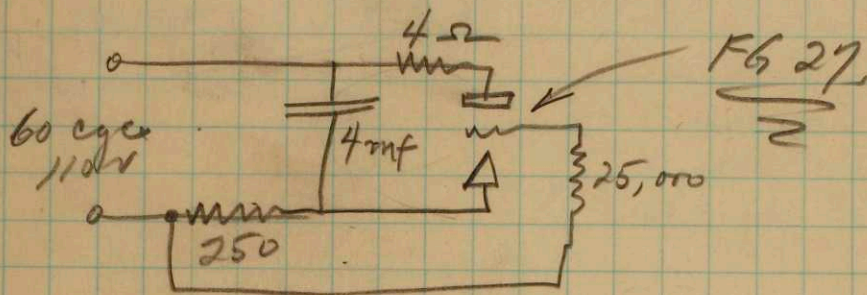 4 Ω
FG 27
60 cyce
110 v
4 mf
25,000
250